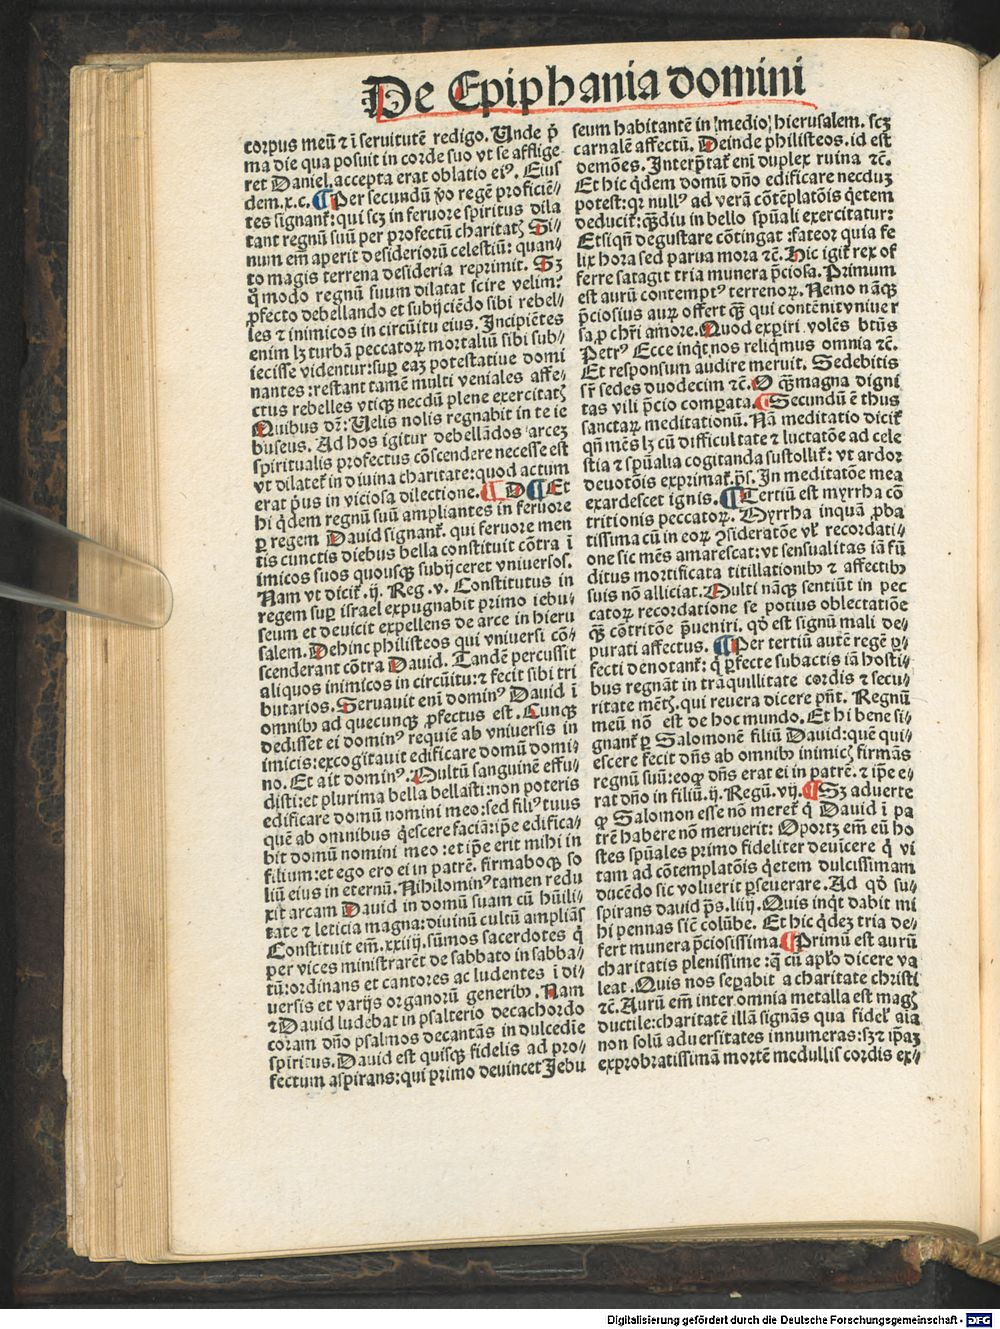 De Epiphania domini
corpus meū ⁊ ī seruitutē redigo. Unde p̄
ma die qua posuit in corde suo vt se afflige
ret Daniel, accepta erat oblatio eiꝰ. Eius
dem .x.c. ¶ Per secundū ṽo regē proficiē⸗
tes signant᷑: qui scꝫ in feruore spiritus dila
tant regnū suū per profectū charitatꝭ Si⸗
num em̄ aperit desideriorū celestiū: quan⸗
to magis terrena desideria reprimit. Sꝫ
q̊modo regnū suum dilatat scire velim?
ꝓfecto debellando et subijciēdo sibi rebel⸗
les ⁊ inimicos in circūitu eius. Incipiētes
enim lꝫ turbā peccatoꝝ mortaliū sibi sub⸗
iecisse videntur: suꝑ eaꝫ potestatiue domi
nantes: restant tamē multi veniales affe⸗
ctus rebelles vtiqꝫ necdū plene exercitatꝭ
Quibus dr̄: Uelis nolis regnabit in te ie
buseus. Ad hos igitur debellādos arceꝫ
spiritualis profectus cōscendere necesse est
vt dilatet᷑ in diuina charitate: quod actum
erat p̄us in viciosa dilectione. ¶ D ¶ Et
hi q̇dem regnū suū ampliantes in feruore
ꝑ regem Dauid signant᷑. qui feruore men
tis cunctis diebus bella constituit cōtra ī
imicos suos quousqꝫ subijceret vniuersos.
Nam vt dicit᷑ .ij. Reg. v. Constitutus in
regem suꝑ israel expugnabit primo iebu⸗
seum et deuicit expellens de arce in hieru
salem. Dehinc philisteos qui vniuersi cō⸗
scenderant cōtra Dauid. Tandē percussit
aliquos inimicos in circūitu: ⁊ fecit sibi tri
butarios. Seruauit enī dominꝰ Dauid ī
omnibꝫ ad quecunqꝫ ꝓfectus est. Cunqꝫ
dedisset ei dominꝰ requiē ab vniuersis in
imicis: excogitauit edificare domū domi⸗
no. Et ait dominꝰ. Multū sanguinē effu⸗
disti: et plurima bella bellasti: non poteris
edificare domū nomini meo: sed filiꝰ tuus
quē ab omnibus q̇escere faciā: ip̄e edifica⸗
bit domū nomini meo: et ip̄e erit mihi in
filium: et ego ero ei in patrē. firmaboqꝫ so
liū eius in eternū. Nihilominꝰ tamen redu
xit arcam Dauid in domū suam cū hūili⸗
tate ⁊ leticia magna: diuinū cultū ampliās
Constituit em̄ .xxiiij. sūmos sacerdotes q̇
per vices ministrarēt de sabbato in sabba⸗
tū: ordinans et cantores ac ludentes ī di⸗
uersis et varijs organorū generibꝫ. Nam
⁊ Dauid ludebat in psalterio decachordo
coram dn̄o psalmos decantās in dulcedīe
spiritus. Dauid est quisqꝫ fidelis ad pro⸗
fectum aspirans: qui primo deuincet Jebu
seum habitantē in medio hierusalem. scꝫ
carnalē affectū. Deinde philisteos. id est
demōes. Interp̄tat᷑ enī duplex ruina ⁊c̄.
Et hic q̇dem domū dn̄o edificare necduꝫ
potest: qꝛ nullꝰ ad verā cōtēplatōis q̇etem
deducit᷑: qꝫdiu in bello spūali exercitatur:
Etsi qn̄ degustare cōtingat: fateor quia fe
lix hora sed parua mora ⁊c̄. Hic igit᷑ rex of
ferre satagit tria munera p̄ciosa. Primum
est aurū contemptꝰ terrenoꝝ. Nemo nāqꝫ
p̄ciosius auꝝ offert qꝫ qui contēnit vniuer
sa, ꝓ chr̄i amore. Quod experiri volēs bt̄us
Petrꝰ Ecce inqͥt nos reliq̇mus omnia ⁊c̄.
Et responsum audire meruit. Sedebitis
sr̄ sedes duodecim ⁊c̄. O qꝫ magna digni
tas vili p̄cio comꝑata. ¶ Secundū ē thus
sanctaꝝ meditationū. Nā meditatio dicit᷑
qn̄ mēs lꝫ cū difficultate ⁊ luctatōe ad cele
stia ⁊ spūalia cogitanda sustollit᷑: vt ardor
deuotōis exprimat᷑. p̄s. In meditatōe mea
exardescet ignis. ¶ Tertiū est myrrha cō
tritionis peccatoꝝ. Myrrha inquā ꝓba
tissima cū in eoꝝ ꝯsideratōe vl̓ recordati⸗
one sic mēs amarescat: vt sensualitas iā fū
ditus mortificata titillationibꝫ ⁊ affectibꝫ
suis nō alliciat. Multi nāqꝫ sentiūt in pec
catoꝝ recordatione se potius oblectatiōe
qꝫ cōtritōe p̄ueniri. qd̓ est signū mali de⸗
purati affectus. ¶ Per tertiū autē regē ꝑ⸗
fecti denotant᷑: q̇ ꝑfecte subactis iā hosti⸗
bus regnāt in trāquillitate cordis ⁊ secu⸗
ritate mētꝭ. qui reuera dicere pn̄t. Regnū
meū nō est de hoc mundo. Et hi bene si⸗
gnant᷑ ꝑ Salomonē filiū Dauid: quē qui⸗
escere fecit dn̄s ab omnibꝫ inimicꝭ firmās
regnū suū: eoqꝫ dn̄s erat ei in patrē. ⁊ ip̄e e⸗
rat dn̄o in filiū. ij. Regū. vij. ¶ Sꝫ aduerte
qꝫ Salomon esse nō meret᷑ q̇ Dauid ī pa
trē habere nō meruerit: Oportꝫ em̄ eū ho
stes spūales primo fideliter deuīcere q̇ vi
tam ad cōtemplatōis q̇etem dulcissimam
ducēdo sic voluerit ꝑseuerare. Ad qd̓ su⸗
spirans dauid p̄s. liiij. Quis inqͥt dabit mi
hi pennas sic̄ colūbe. Et hic q̇deꝫ tria de⸗
fert munera p̄ciosissima. ¶ Primū est aurū
charitatis plenissime: q̄ cū apl̓o dicere va
leat. Quis nos seꝑabit a charitate christi
⁊c̄. Aurū em̄ inter omnia metalla est magꝭ
ductile: charitatē illā signās qua fidel᷑ aīa
non solū aduersitates innumeras: sꝫ ⁊ ip̄aꝫ
exprobratissimā mortē medullis cordis ex⸗
Digitalisierung gefördert durch die Deutsche Forschungsgemeinschaft - DFG